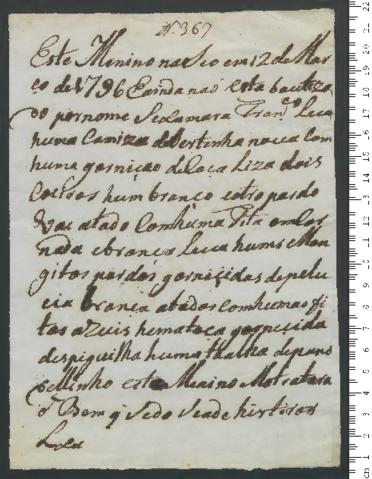 Nº 367
Este Menino nasceo em 12 de Mar
ço de 1796 E ainda não esta bautiza
do por nome se clamara Franco Leva
huma Camiza de Bertinha nova Com
huma gorniçao de Caça Liza dois
Coeiros hum branco eotro pardo
Vai atado Com huma Fita emCar
nada ebranca Leva huns Man
gitos pardos gornicidos de pelu
cia branca atados com humas fi
tas azuis huma toca gornicida
despiguilha huma thalha de pano
vellinho este Menino Motratara
o Bom q Sedo Seade hir tirar